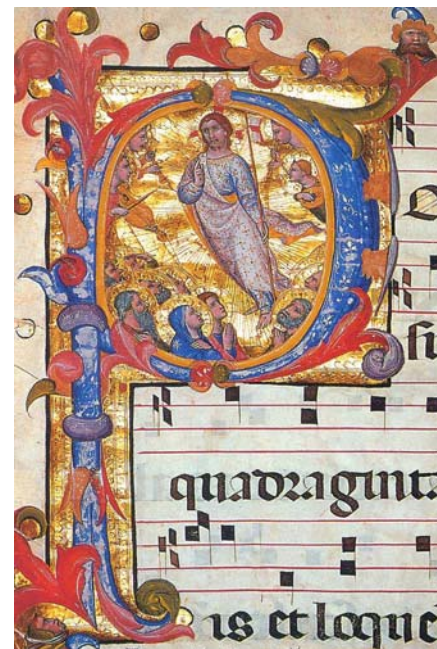 P
quadraginta
is et loque